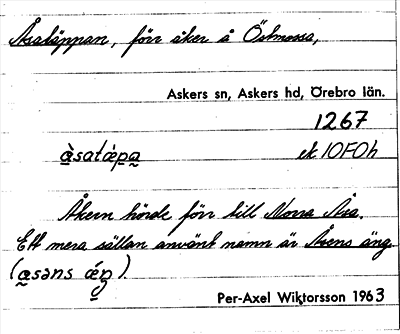 Åsatäppan, förr åker å Östmossa,
Askers sn, Askers hd, Örebro län.
1267
åsatæpa ek 10F0h
Åkern hörde förr till Norra Åsa.
Ett mera sällan använt namn är Åsens äng
(åsəns æŋ).
Per-Axel Wiktorsson 1963